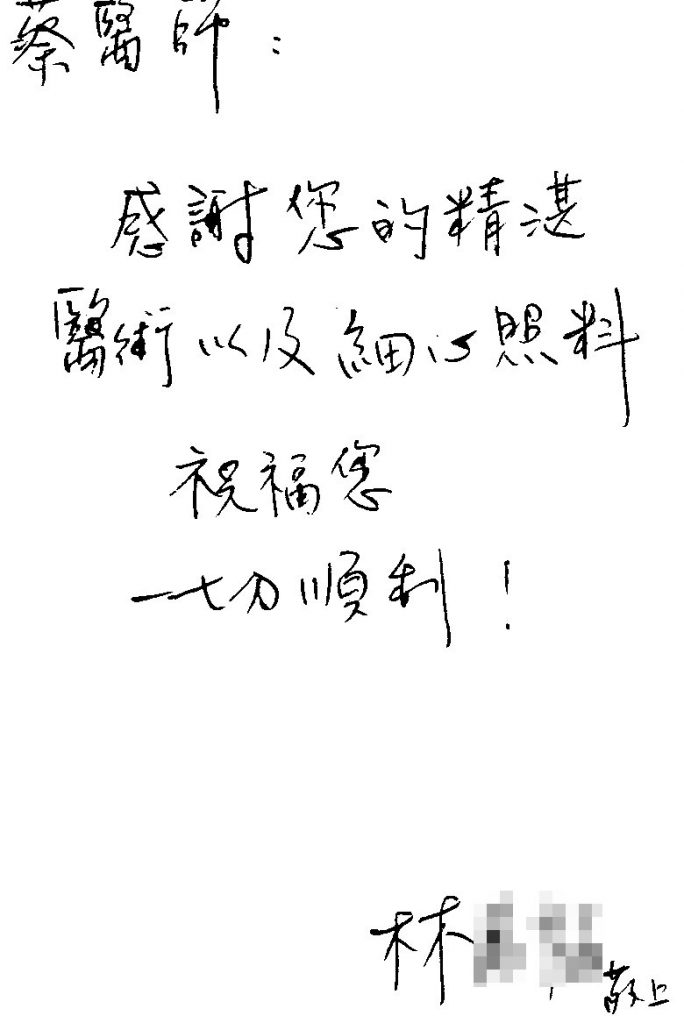 蔡醫師：
感謝您的精湛
醫術以及細心照料
祝福您
一切順利！
林 敬上